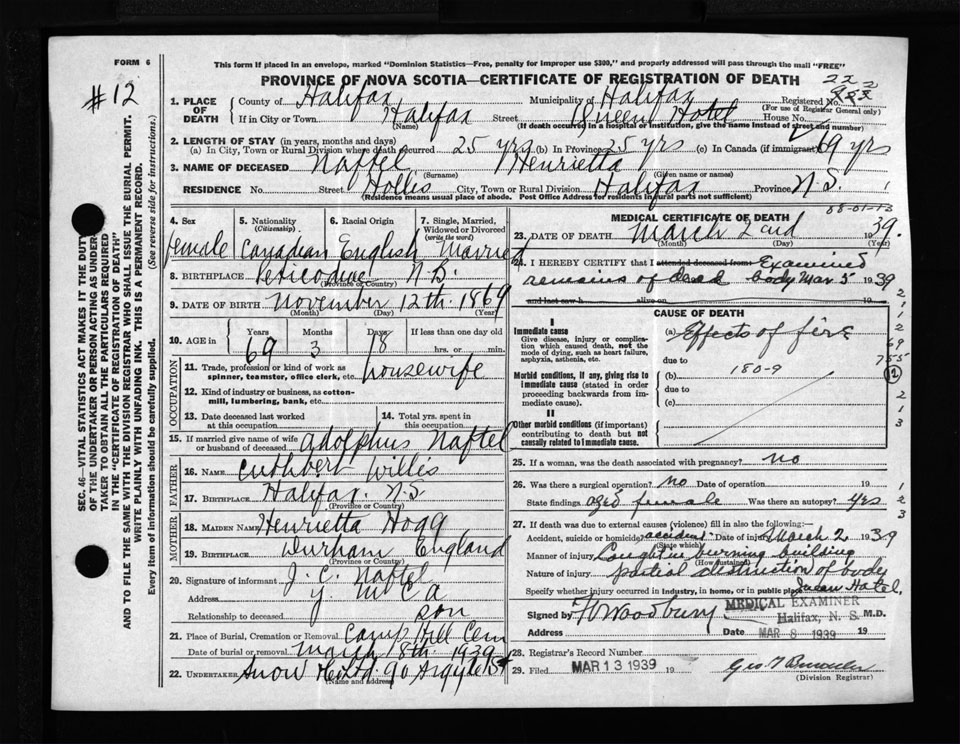 FORM 6
This form if placed in an envelope, marked "Dominion Statistics—Free, penalty for improper use $300," and properly addressed will pass through the mail "FREE"
PROVINCE OF NOVA SCOTIA—CERTIFICATE OF REGISTRATION OF DEATH
#12
1. PLACE OF DEATH
County of Halifax Municipality of Halifax Registered No.
(For use of Registrar General only)
If in City or Town Halifax Street Queen Hotel House No.
(Name) (If death occurred in a hospital or institution, give the name instead of street and number)
2. LENGTH OF STAY (in years, months and days)
(a) In City, Town or Rural Division where death occurred 25 yrs (b) In Province 25 yrs (c) In Canada (if immigrant) 69 yrs
3. NAME OF DECEASED Naftel Henrietta
(Surname) (Given name or names)
RESIDENCE No. Street Hollis City, Town or Rural Division Halifax Province N.S.
(Residence means usual place of abode. Post Office Address for residents in rural parts not sufficient)
4. Sex 5. Nationality (Citizenship) 6. Racial Origin 7. Single, Married, Widowed or Divorced (write the word)
female Canadian English Married
8. BIRTHPLACE Peticodiac N.B.
(Province or Country)
9. DATE OF BIRTH November 12th 1869
(Month) (Day) (Year)
10. AGE in Years Months Days If less than one day old
69 3 18 hrs. or min.
OCCUPATION
11. Trade, profession or kind of work as spinner, teamster, office clerk, etc. housewife
12. Kind of industry or business, as cotton-mill, lumbering, bank, etc.
13. Date deceased last worked at this occupation 14. Total yrs. spent in this occupation
15. If married give name of wife or husband of deceased. Adolphus Naftel
FATHER
16. NAME Cuthbert Willis
17. BIRTHPLACE Halifax. N.S.
(Province or Country)
MOTHER
18. MAIDEN NAME Henrietta Hogg
19. BIRTHPLACE Durham England
(Province or Country)
20. Signature of informant J. C. Naftel
Address Y M C A
Relationship to deceased son
21. Place of Burial, Cremation or Removal Camp Hill Cem
Date of burial or removal March 18th. 1939
22. UNDERTAKER Snow & Co Ltd. 90 Argyle St
(Name and Address)
MEDICAL CERTIFICATE OF DEATH
23. DATE OF DEATH March 2nd 1939.
(Month) (Day) (Year)
24. I HEREBY CERTIFY that I attended deceased from Examined
remains of dead body Mar 5 1939
and last saw h alive on
CAUSE OF DEATH
I
Immediate cause
Give disease, injury or complication which caused death, not the mode of dying, such as heart failure, asphyxia, asthenia, etc.
(a) Effects of fire
due to
Morbid conditions, if any, giving rise to immediate cause (stated in order proceeding backwards from immediate cause).
(b) 180-9
due to
(c)
II
Other morbid conditions (if important) contributing to death but not causally related to immediate cause.
25. If a woman, was the death associated with pregnancy? no
26. Was there a surgical operation? No Date of operation
State findings aged female Was there an autopsy? Yes
27. If death was due to external causes (violence) fill in also the following:—
Accident, suicide or homicide? accident Date of injury March 2 1939
(State which)
Manner of injury Caught in burning building
(How sustained)
Nature of injury partial destruction of body
Specify whether injury occurred in Industry, in home, or in public place Queen Hotel.
Signed by F V Woodbury M.D.
MEDICAL EXAMINER
Halifax, N. S.
Address Date MAR 8 1939 19
28. Registrar's Record Number
29. Filed MAR 13 1939 19
(Division Registrar)
SEC. 46—VITAL STATISTICS ACT MAKES IT THE DUTY
OF THE UNDERTAKER OR PERSON ACTING AS UNDERTAKER TO OBTAIN ALL THE PARTICULARS REQUIRED
IN THE "CERTIFICATE OF REGISTRATION OF DEATH"
AND TO FILE THE SAME WITH THE DIVISION REGISTRAR WHO SHALL ISSUE THE BURIAL PERMIT.
WRITE PLAINLY WITH UNFADING INK. THIS IS A PERMANENT RECORD.
Every item of information should be carefully supplied. (See reverse side for instructions.)